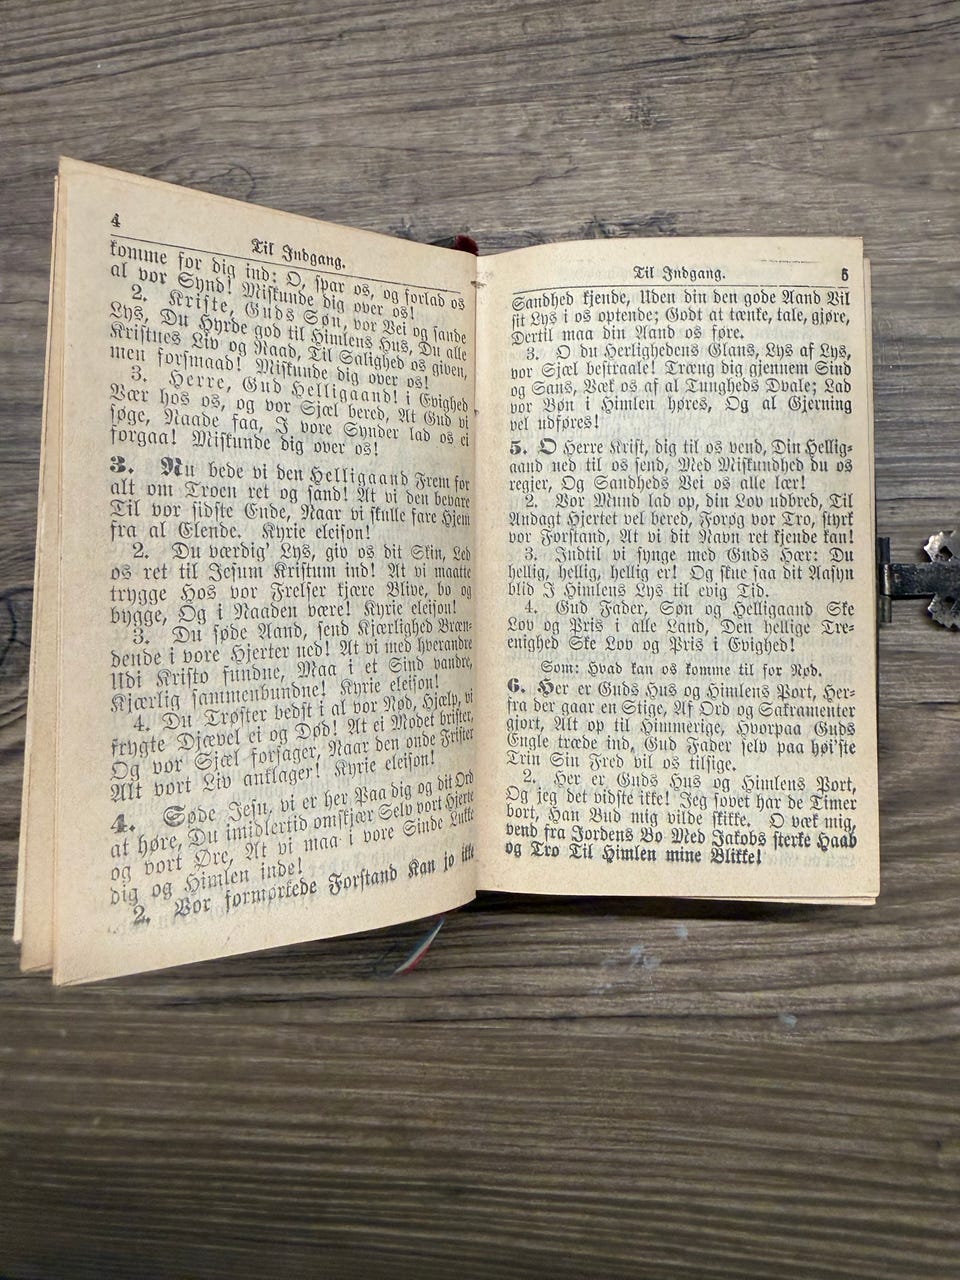 4
Til Indgang.
komme for dig ind: O, spar os, og forlad os
al vor Synd! Miskunde dig over os!
2. Kriste, Guds Søn, vor Vei og sande
Lys, Du Hyrde god til Himlens Hus, Du alle
Kristnes Liv og Raad, Til Salighed os given,
men forsmaad! Miskunde dig over os!
3. Herre, Gud Helligaand! i Evighed
Vær hos os, og vor Sjæl bered, At Gud vi
søge, Naade faa, I vore Synder lad os ei
forgaa! Miskunde dig over os!
3. Nu bede vi den Helligaand Frem for
alt om Troen ret og sand! At vi den bevare
Til vor sidste Ende, Naar vi skulle fare Hjem
fra al Elende. Kyrie eleison!
2. Du værdig' Lys, giv os dit Skin, Led
os ret til Jesum Kristum ind! At vi maatte
trygge Hos vor Frelser kjære Blive, bo og
bygge, Og i Naaden være! Kyrie eleison!
3. Du søde Aand, send Kjærlighed Bræn-
dende i vore Hjerter ned! At vi med hverandre
Udi Kristo fundne, Maa i et Sind vandre,
Kjærlig sammenbundne! Kyrie eleison!
4. Du Trøster bedst i al vor Nød, Hjælp, vi
frygte Djævel ei og Død! At ei Modet brister,
Og vor Sjæl forsager, Naar den onde Frister
Alt vort Liv anklager! Kyrie eleison!
4. Søde Jesu, vi er her Paa dig og dit Ord
at høre, Du imidlertid omskjær Selv vort Hjerte
og vort Øre, At vi maa i vore Sinde Lukke
dig og Himlen inde!
2. Vor formørkede Forstand Kan jo ikke
Til Indgang.
5
Sandhed kjende, Uden din den gode Aand Vil
sit Lys i os optende; Godt at tænke, tale, gjøre,
Dertil maa din Aand os føre.
3. O du Herlighedens Glans, Lys af Lys,
vor Sjæl bestraale! Træng dig gjennem Sind
og Sans, Væk os af al Tungheds Dvale; Lad
vor Bøn i Himlen høres, Og al Gjerning
vel udføres!
5. O Herre Krist, dig til os vend, Din Hellig-
aand ned til os send, Med Miskundhed du os
regjer, Og Sandheds Vei os alle lær!
2. Vor Mund lad op, din Lov udbred, Til
Andagt Hjertet vel bered, Forøg vor Tro, styrk
vor Forstand, At vi dit Navn ret kjende kan!
3. Indtil vi synge med Guds Hær: Du
hellig, hellig, hellig er! Og skue faa dit Aasyn
blid I Himlens Lys til evig Tid.
4. Gud Fader, Søn og Helligaand Ske
Lov og Pris i alle Land, Den hellige Tre-
enighed Ske Lov og Pris i Evighed!
Som: Hvad kan os komme til for Nød.
6. Her er Guds Hus og Himlens Port, Her-
fra der gaar en Stige, Af Ord og Sakramenter
gjort, Alt op til Himmerige, Hvorpaa Guds
Engle træde ind, Gud Fader selv paa høi'ste
Trin Sin Fred vil os tilsige.
2. Her er Guds Hus og Himlens Port,
Og jeg det vidste ikke! Jeg sovet har de Timer
bort, Han Bud mig vilde skikke. O væk mig,
vend fra Jordens Bo Med Jakobs sterke Haab
og Tro Til Himlen mine Blikke!